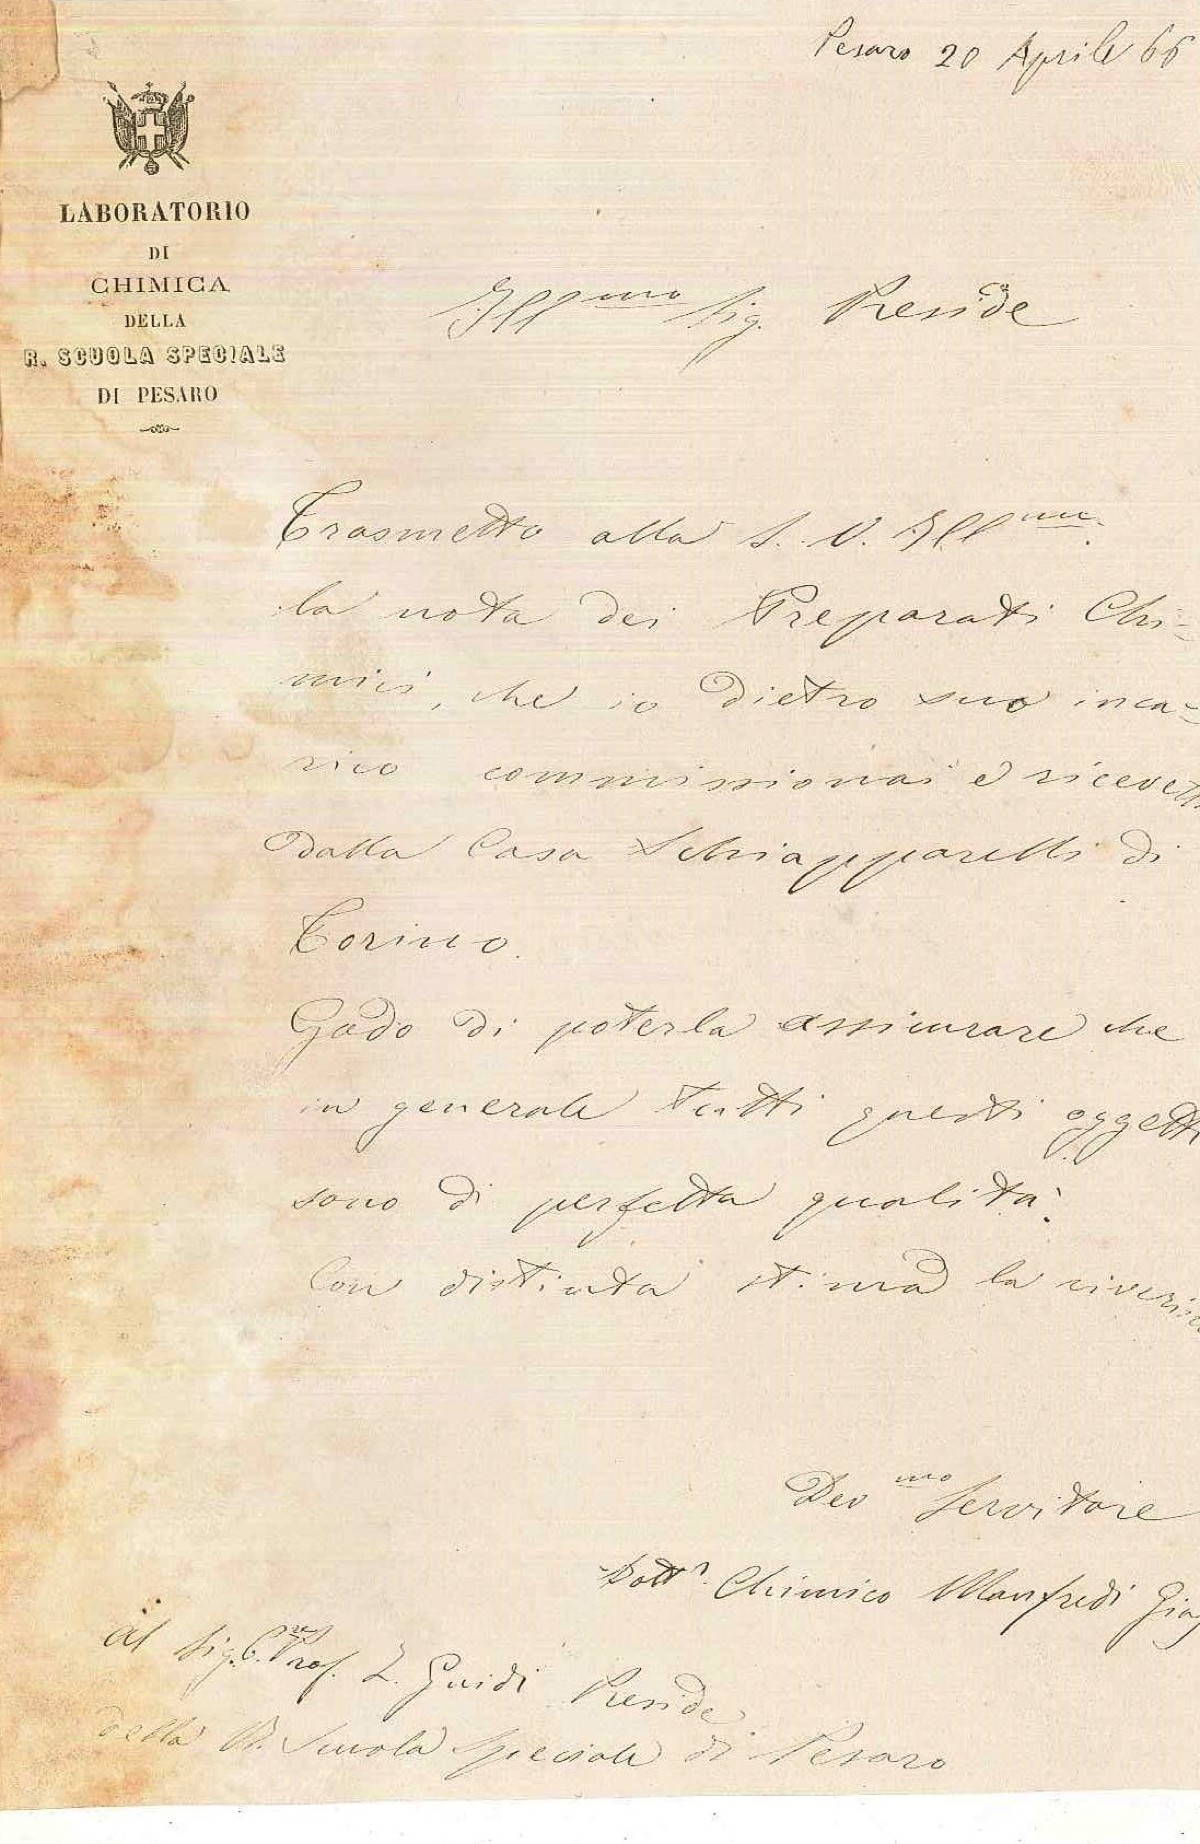 Pesaro 20 Aprile 66
LABORATORIO
DI
CHIMICA
DELLA
R. SCUOLA SPECIALE
DI PESARO
Illmo Sig. Preside
Trasmetto alla S. V. Illma.
la nota dei Preparati Chi=
mici, che io dietro suo inca=
rico commissionai e ricevetti
dalla Casa Schiapparelli di
Torino.
Godo di poterla assicurare che
in generale tutti questi oggetti
sono di perfetta qualità.
Con distinta stima la riverisco
Devmo Servitore
Dottr. Chimico Manfredi
Al Sig. Prof. L. Guidi Preside
della R. Scuola Speciale di Pesaro